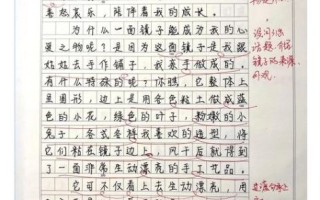 喜怒哀乐，陪伴着我的成长。
为什么一面镜子能成为我的心
爱之物呢？是因为这面镜子是我跟
姑姑去手作铺子，我亲手做成的。
有什么特殊的呢？你瞧，它整体上
呈圆形，边上是用各色粘土做成蓝
色的小花，绿色的叶子，粉嫩的小
兔子，各式各样我喜欢的造型，将
它们粘在镜子边上，风干后就得到
了一面非常生动漂亮的手工艺品。
它可不仅看上去生动漂亮，用
设问引出
话题，介绍
镜子的来源，